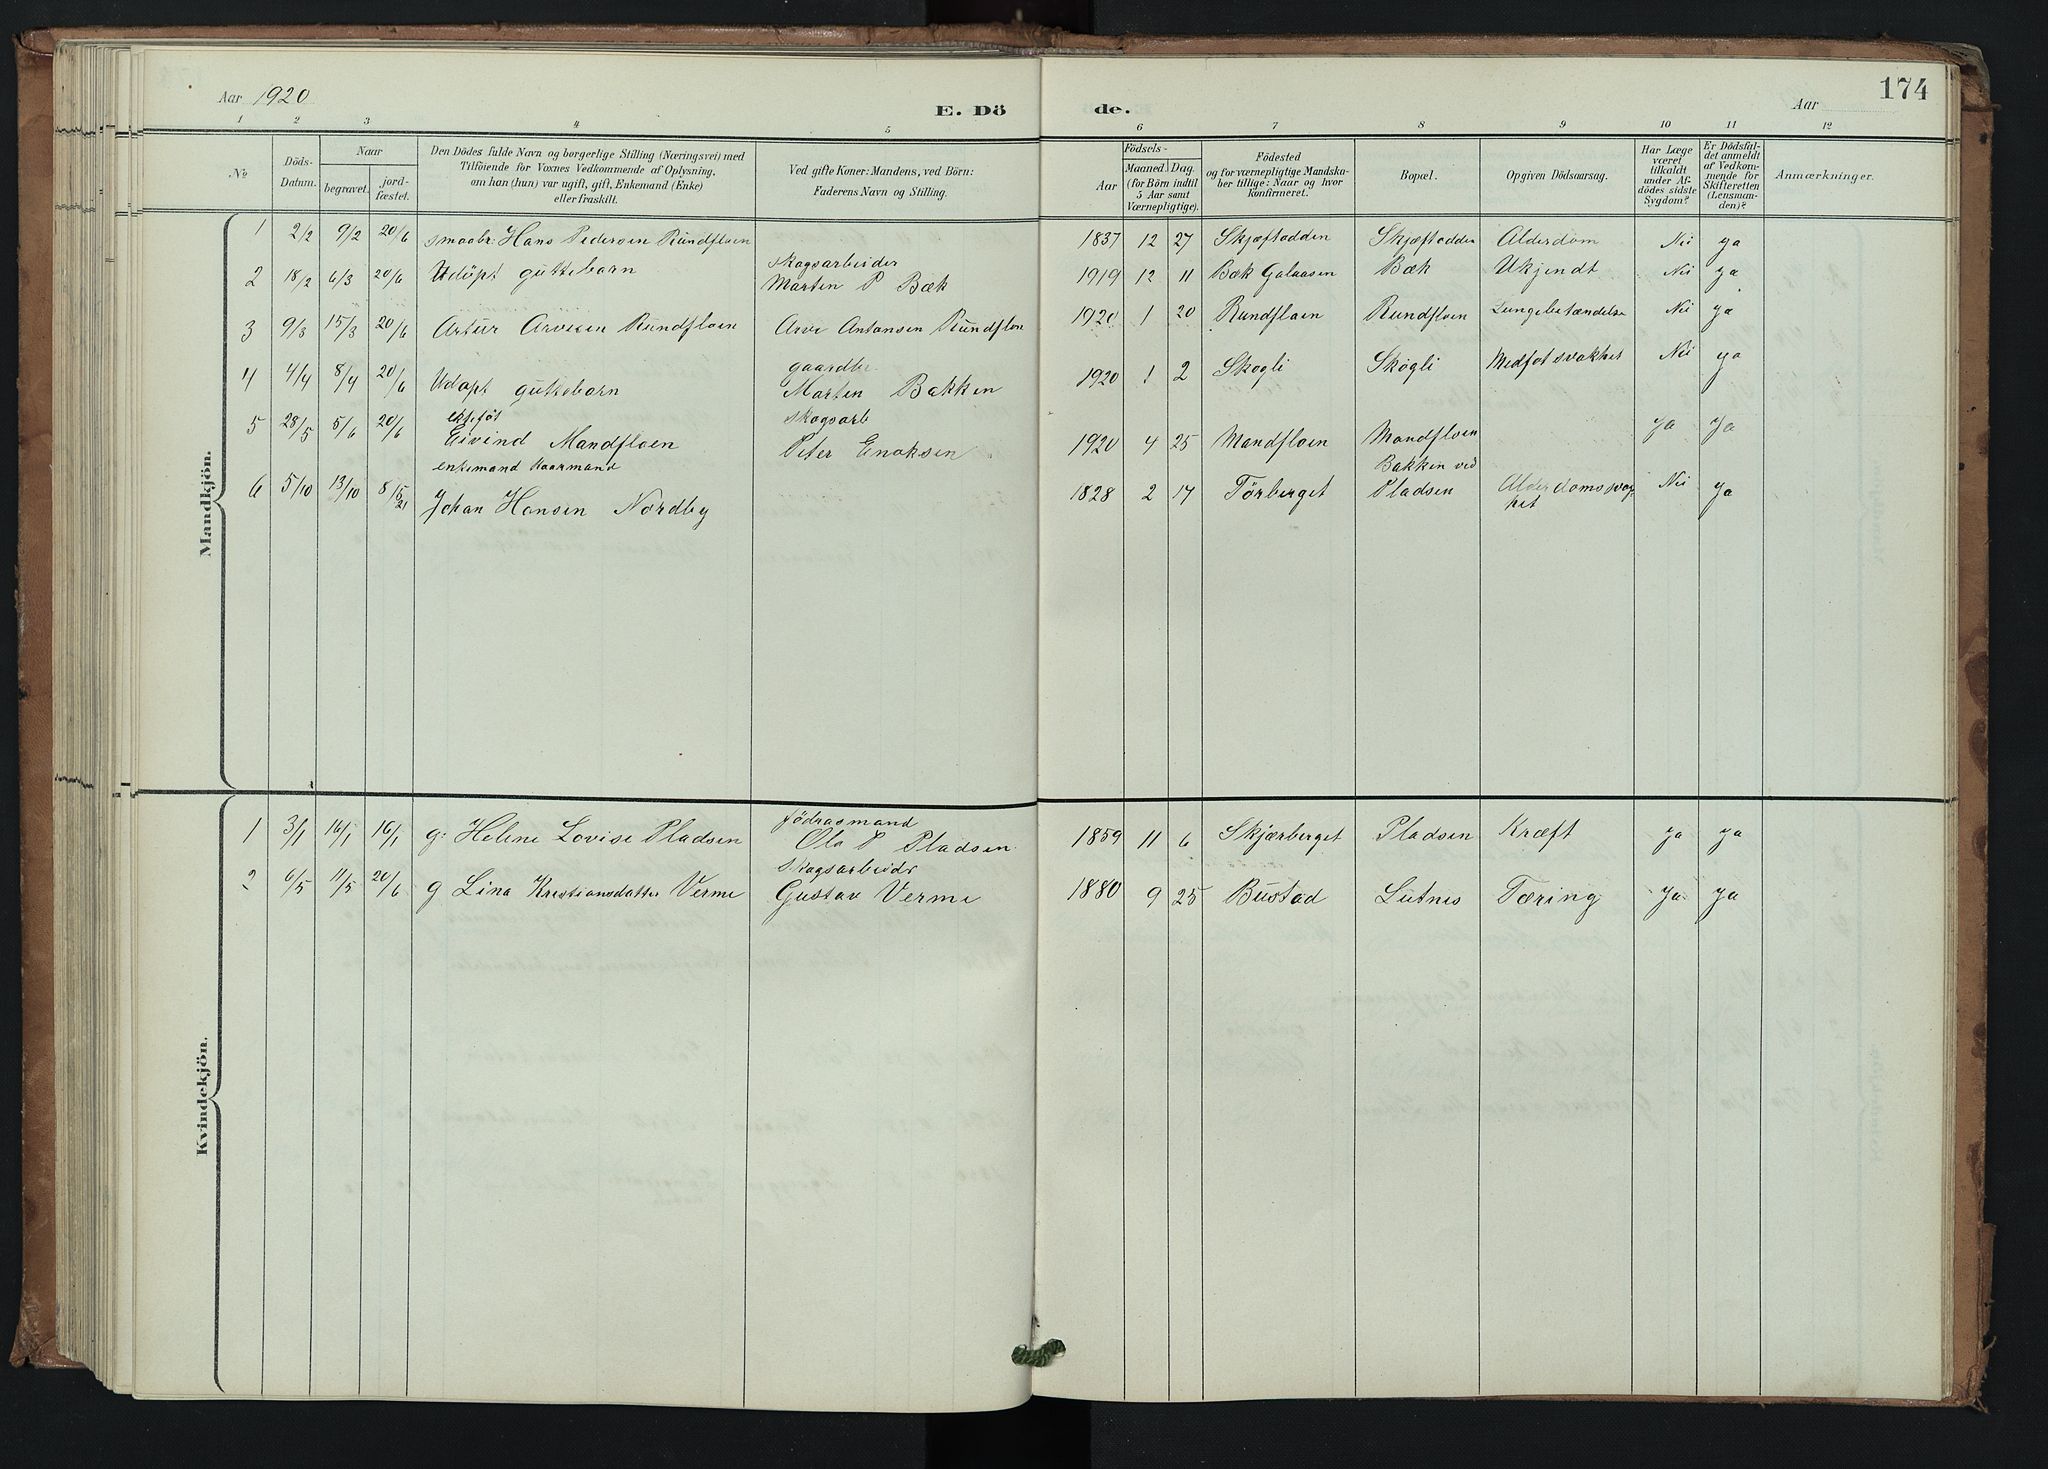 Aar 1920
E. Dö
de.
Aar
174
1 2 3 4 5
6 7 8 9 10 11 12
№
Döds-
Datum.
Naar
begravet.
jord-
fæstet.
Den Dödes fulde Navn og borgerlige Stilling (Næringsvei) med
Tilföiende for Voxnes Vedkommende af Oplysning,
om han (hun) var ugift, gift, Enkemand (Enke)
eller fraskilt.
Ved gifte Koner: Mandens, ved Börn:
Faderens Navn og Stilling.
Födsels-
Aar
Maaned. Dag.
(for Börn indtil
5 Aar samt
Værnepligtige).
Födested
og for værnepligtige Mandska-
ber tillige: Naar og hvor
konfirmeret.
Bopæl.
Opgiven Dödsaarsag.
Har Læge
været
tilkaldt
under Af-
dödes sidste
Sygdom?
Er Dödsfal-
det anmeldt
af Vedkom-
mende for
Skifteretten
(Lensman-
den)?
Anmærkninger.
Mandkjön.
1 2/2 9/2 20/6 smaabr: Hans Pedersen Rundfloen 1837 12 27 Skjæftodden Skjæftodden Alderdom Nei ya
skogsarbeider
2 18/2 6/3 20/6 Udöpt guttebarn Marten P Bæk 1919 12 11 Bæk Galaasen Bæk Ukjendt Nei ya
3 9/3 15/3 20/6 Artur Arvesen Rundfloen Arve Antonsen Rundfloen 1920 1 20 Rundfloen Rundfloen Lungebetændelse Nei ya
gaardbr
4 4/4 8/4 20/6 Udøpt guttebarn Marten Bakken 1920 1 2 Skogli Skogli Medføt svakhet Nei ya
ektefôt skogsarb
5 28/5 5/6 20/6 Eivind Mandfloen Peter Enoksen 1920 4 25 Mandfloen Mandfloen ya ya
enkemand Kaarmand Bakken ved
6 5/10 13/10 8 15/21 Johan Hansen Nordby 1828 2 17 Törberget Pladsen Alderdomssvag-
het Nei ya
Kvindekjön.
födraamand
1 3/1 16/1 16/1 g: Helene Lovise Pladsen Ola P Pladsen 1859 11 6 Skjærberget Pladsen Kræft ya ya
skogsarbeider
2 6/5 11/5 20/6 g Lina Kristiansdatter Verme Gustav Verme 1880 9 25 Bustad Lutnes Tæring ya ya